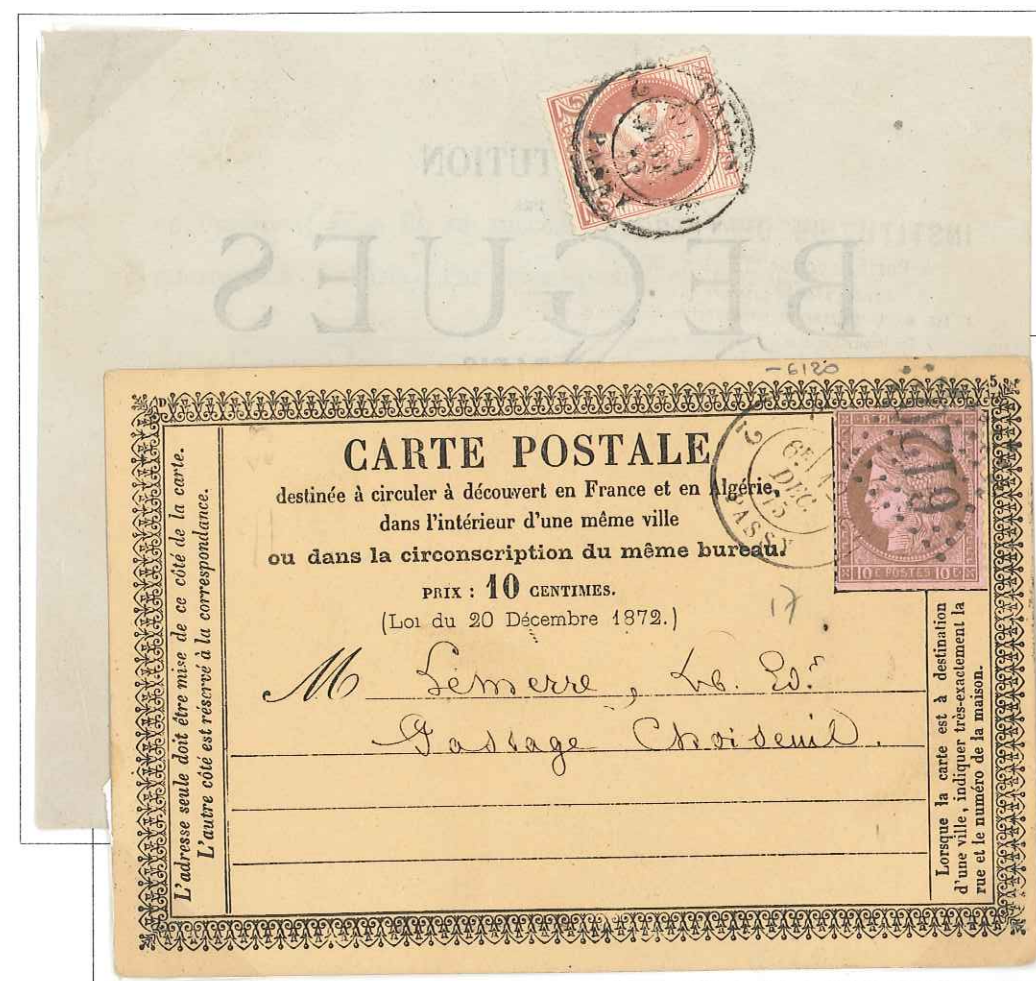 TUTION
INSTITUTION
BÈGUES
2
PASSY
-6120
5.
D
CARTE POSTALE
destinée à circuler à découvert en France et en Algérie,
dans l'intérieur d'une même ville
ou dans la circonscription du même bureau.
PRIX : 10 CENTIMES.
(Loi du 20 Décembre 1872.)
17
M Lemerre, Lib. Edr
Passage Choiseuil.
L'adresse seule doit être mise de ce côté de la carte.
L'autre côté est réservé à la correspondance.
Lorsque la carte est à destination
d'une ville, indiquer très-exactement la
rue et le numéro de la maison.
2
6E
DEC.
PASSY
6120
10 C POSTES 10 C